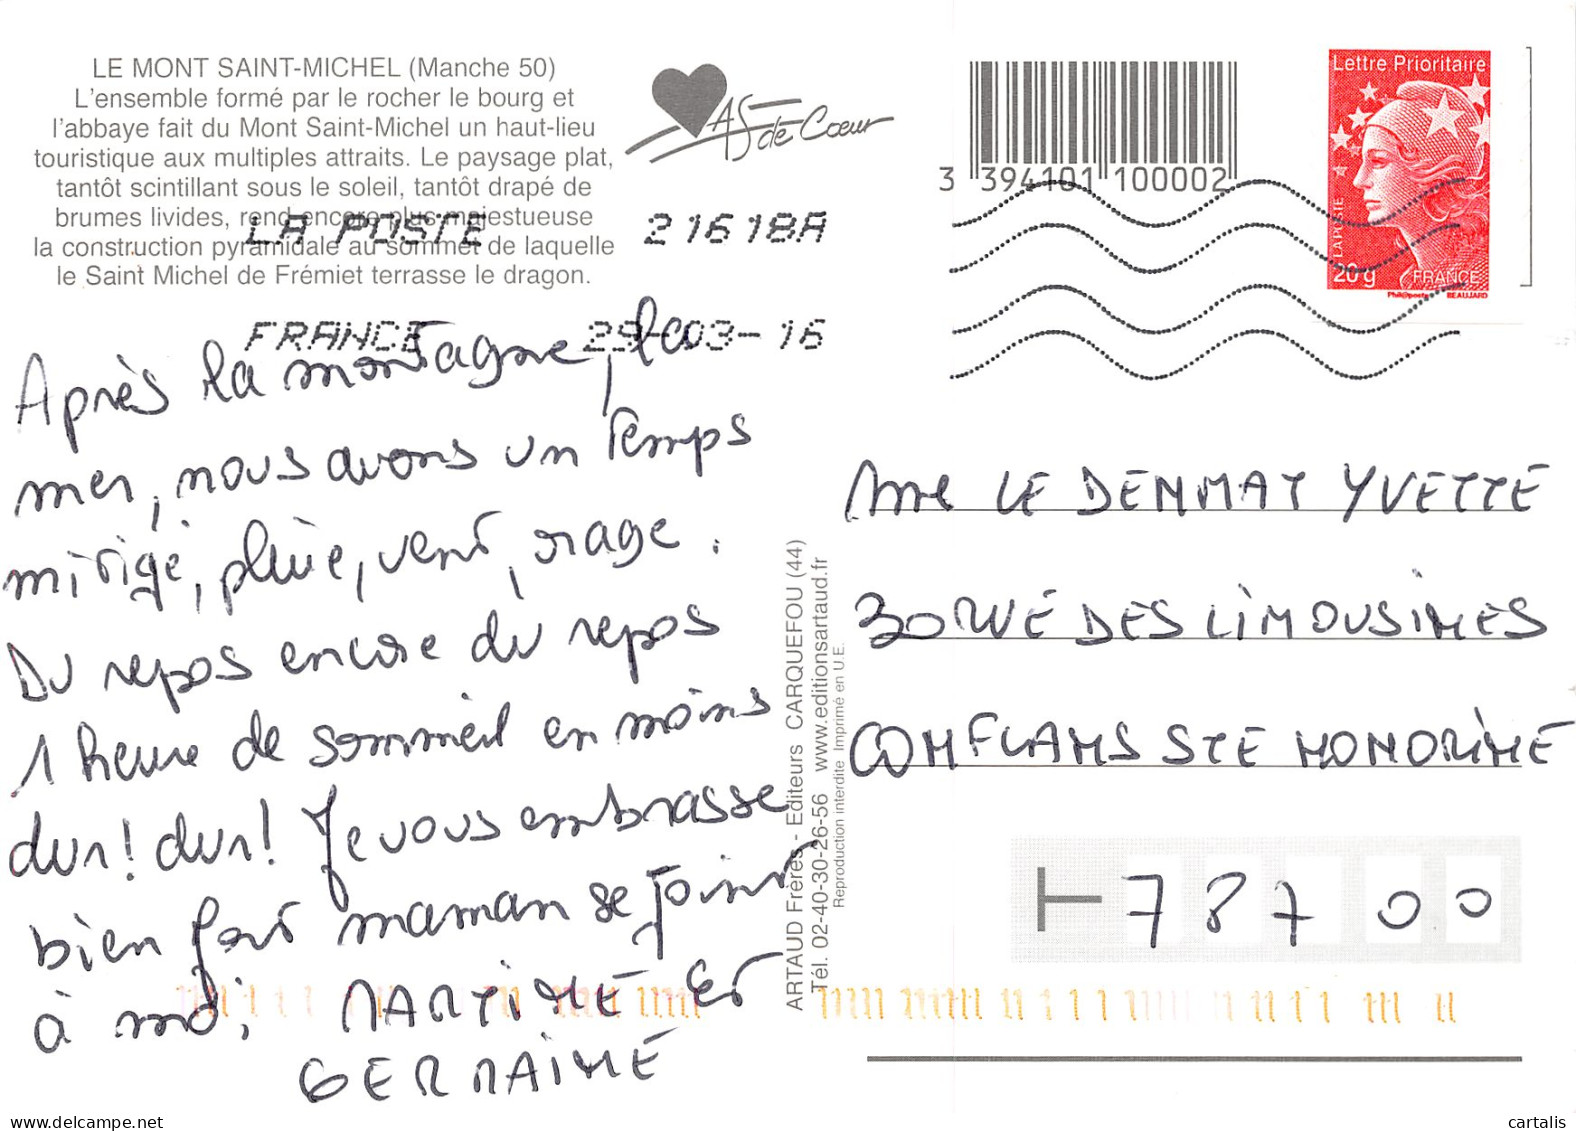 LE MONT SAINT-MICHEL (Manche 50)
L'ensemble formé par le rocher le bourg et
l'abbaye fait du Mont Saint-Michel un haut-lieu
touristique aux multiples attraits. Le paysage plat,
tantôt scintillant sous le soleil, tantôt drapé de
brumes livides, rend encore plus majestueuse
la construction pyramidale au sommet de laquelle
le Saint Michel de Frémiet terrasse le dragon.
AS de Cœur
3 394101 100002
Lettre Prioritaire
LA POSTE
20g FRANCE
Phil@poste BEAUJARD
LA POSTE 21618A
FRANCE 29-03-16
Après la montagne, la
mer, nous avons un temps
mitigé, pluie, vent, orage.
Du repos encore du repos
1 heure de sommeil en moins
dur! dur! Je vous embrasse
bien fort maman se joint
à moi. MARTINE et
GERMAINE
ARTAUD Frères - Editeurs CARQUEFOU (44)
Tél. 02-40-30-26-56 www.editionsartaud.fr
Reproduction interdite Imprimé en U.E.
Mme LE DENMAT YVETTE
30 RUE DES LIMOUSINES
CONFLANS STE HONORINE
78700
cartalis